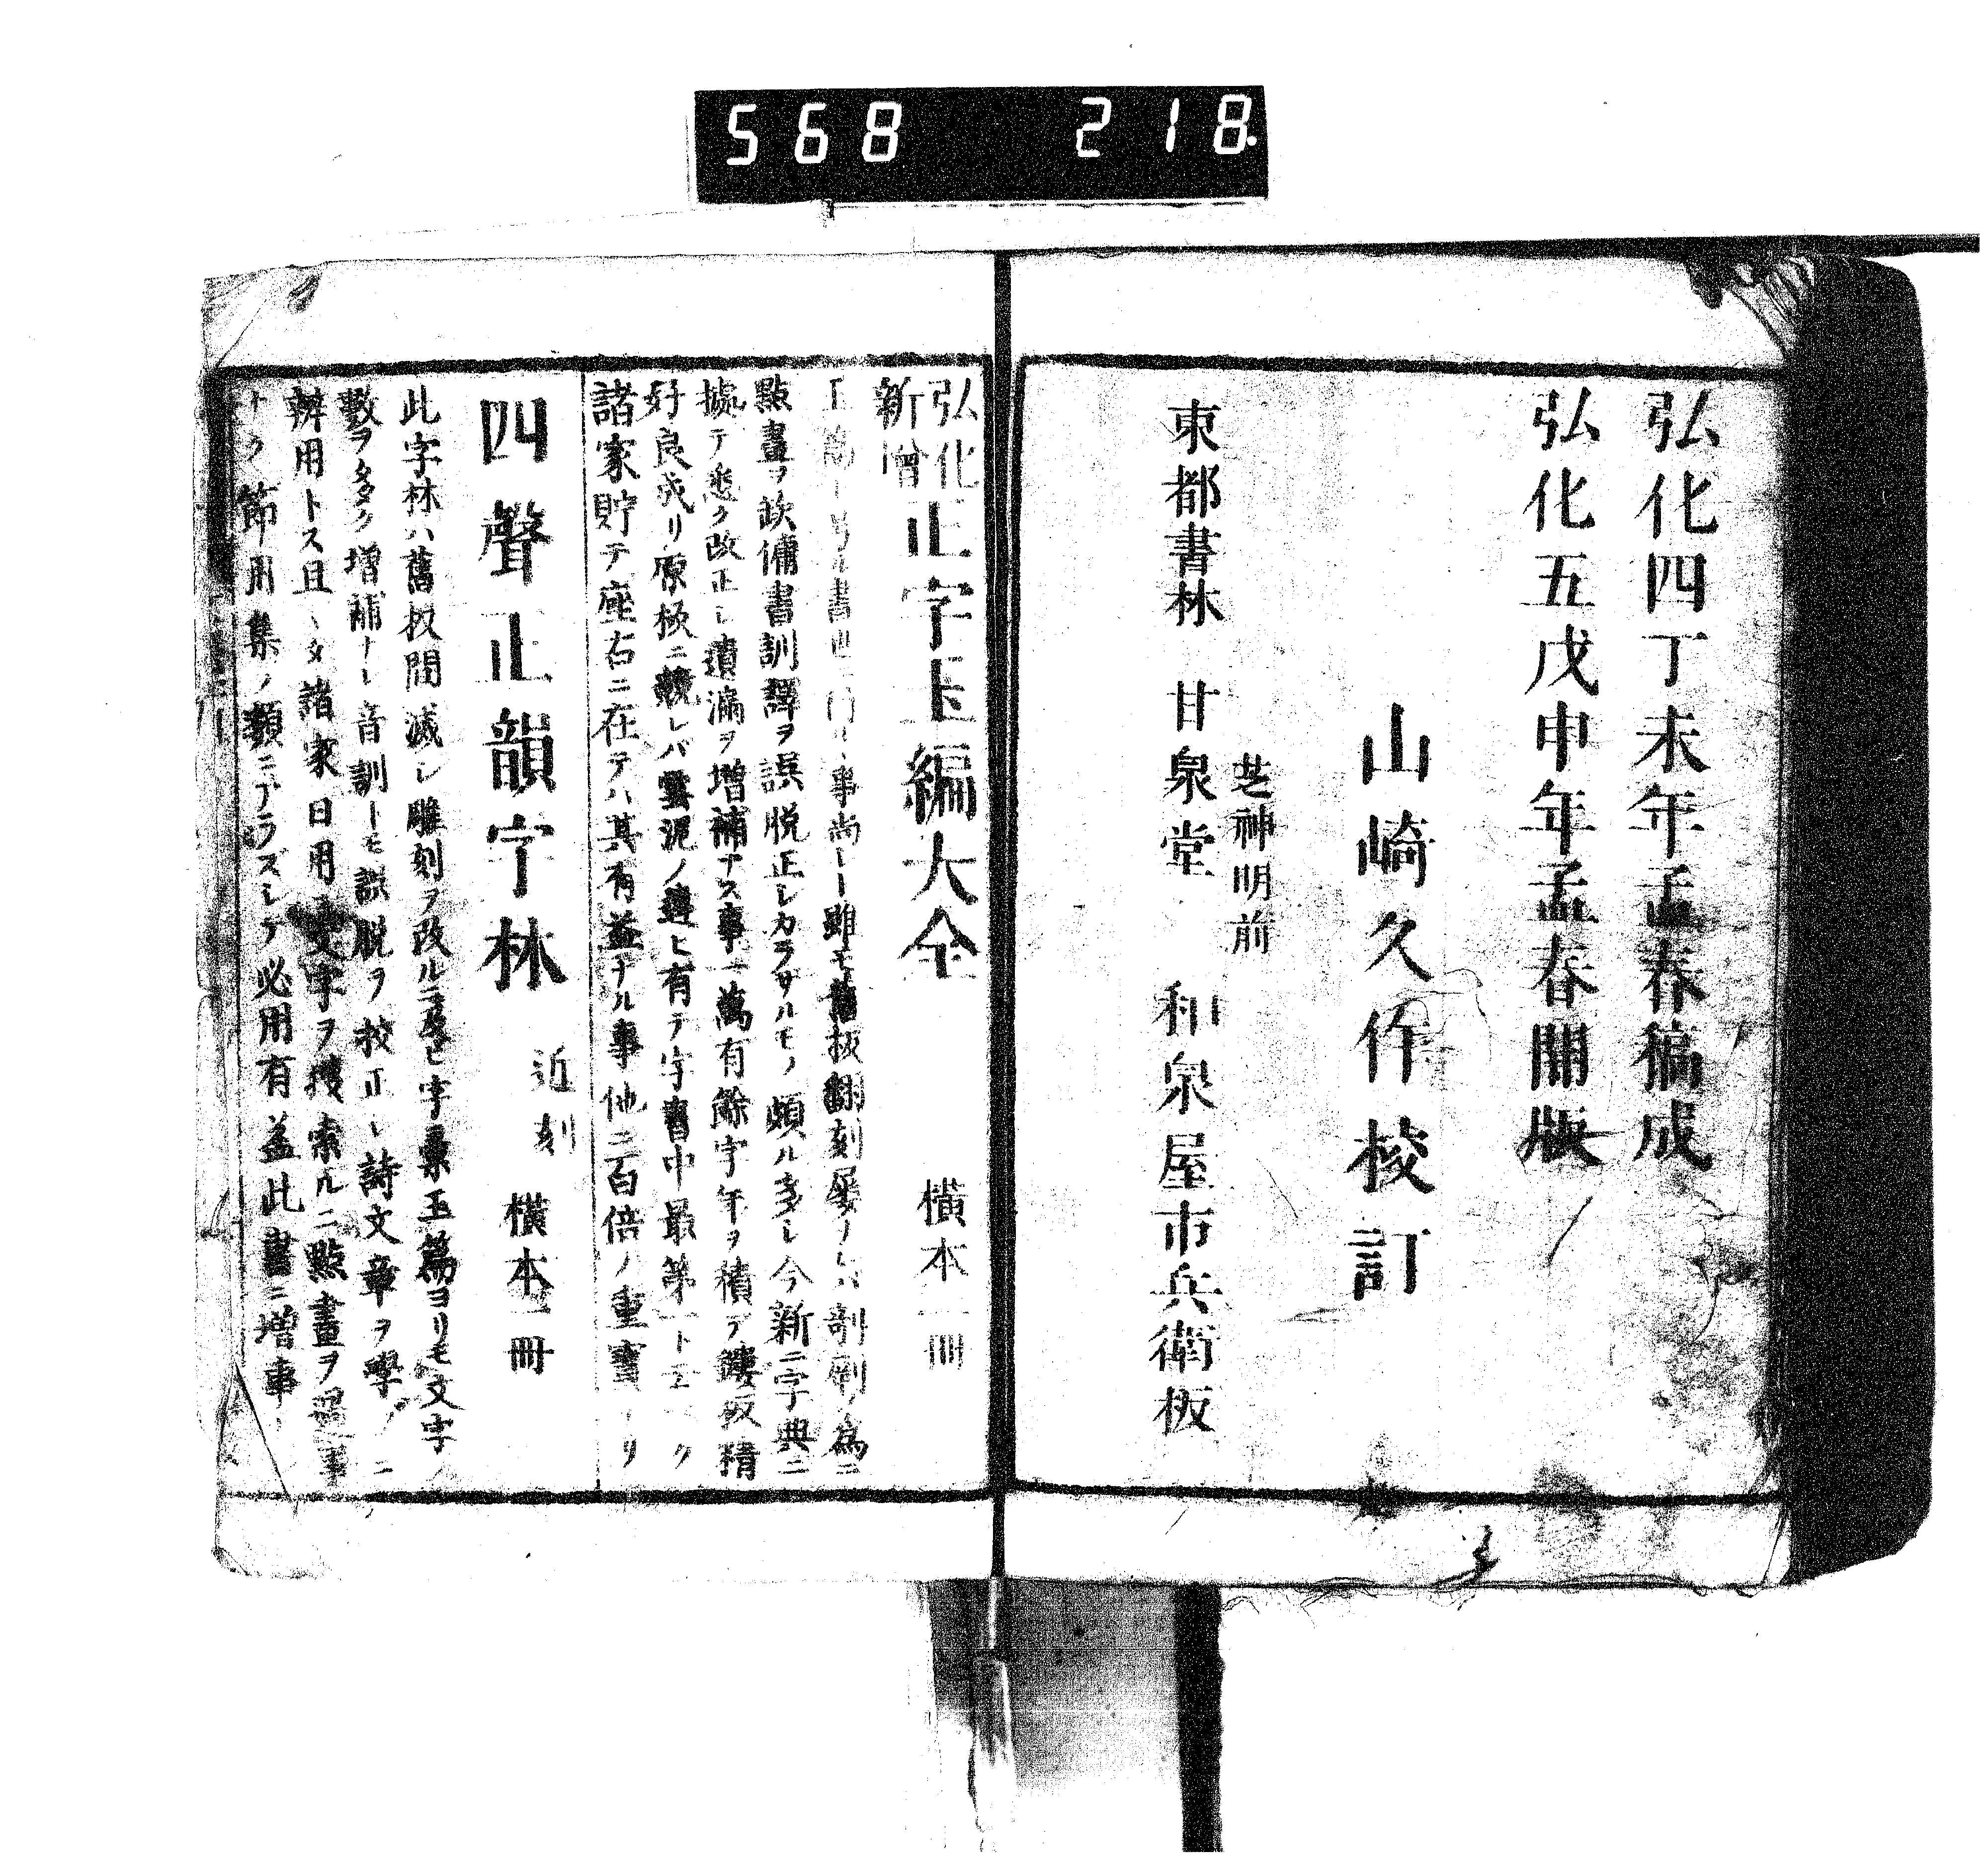 568 218
弘化四丁未年孟春稿成
弘化五戊申年孟春開版
山崎久作校訂
芝神明前
東都書林 甘泉堂 和泉屋市兵衛板
弘化
新増
正字玉編大全 横本一冊
書世 事尚 雖モ舊板翻刻屡 剞劂ノ為ニ
點畫ヲ欽傭書訓譯ヲ誤脱正シカラサルモノ頗ル多シ今新ニ字典ニ
據テ悉ク改正シ遺漏ヲ増補ナス事一萬有餘字年ヲ積テ鏤板精
好良成リ原板ニ競レバ雲泥ノ違ヒ有テ字書中最第一ト
諸家貯テ座右ニ在テハ其有益ナル事他ニ百倍ノ重寶
四聲正韻字林 近刻 横本一冊
此字林ハ舊板間滅シ雕刻ヲ改ルニ及ビ字彙玉篇ヨリモ文字ノ
數ヲ多ク増補ナシ音訓トモ誤脱ヲ校正シ詩文章ヲ學
辨用トス且 諸家日用文字ヲ捜索ルニ點畫ヲ 事
ナク節用集ノ類ニアラズシテ必用有益此書ニ増事